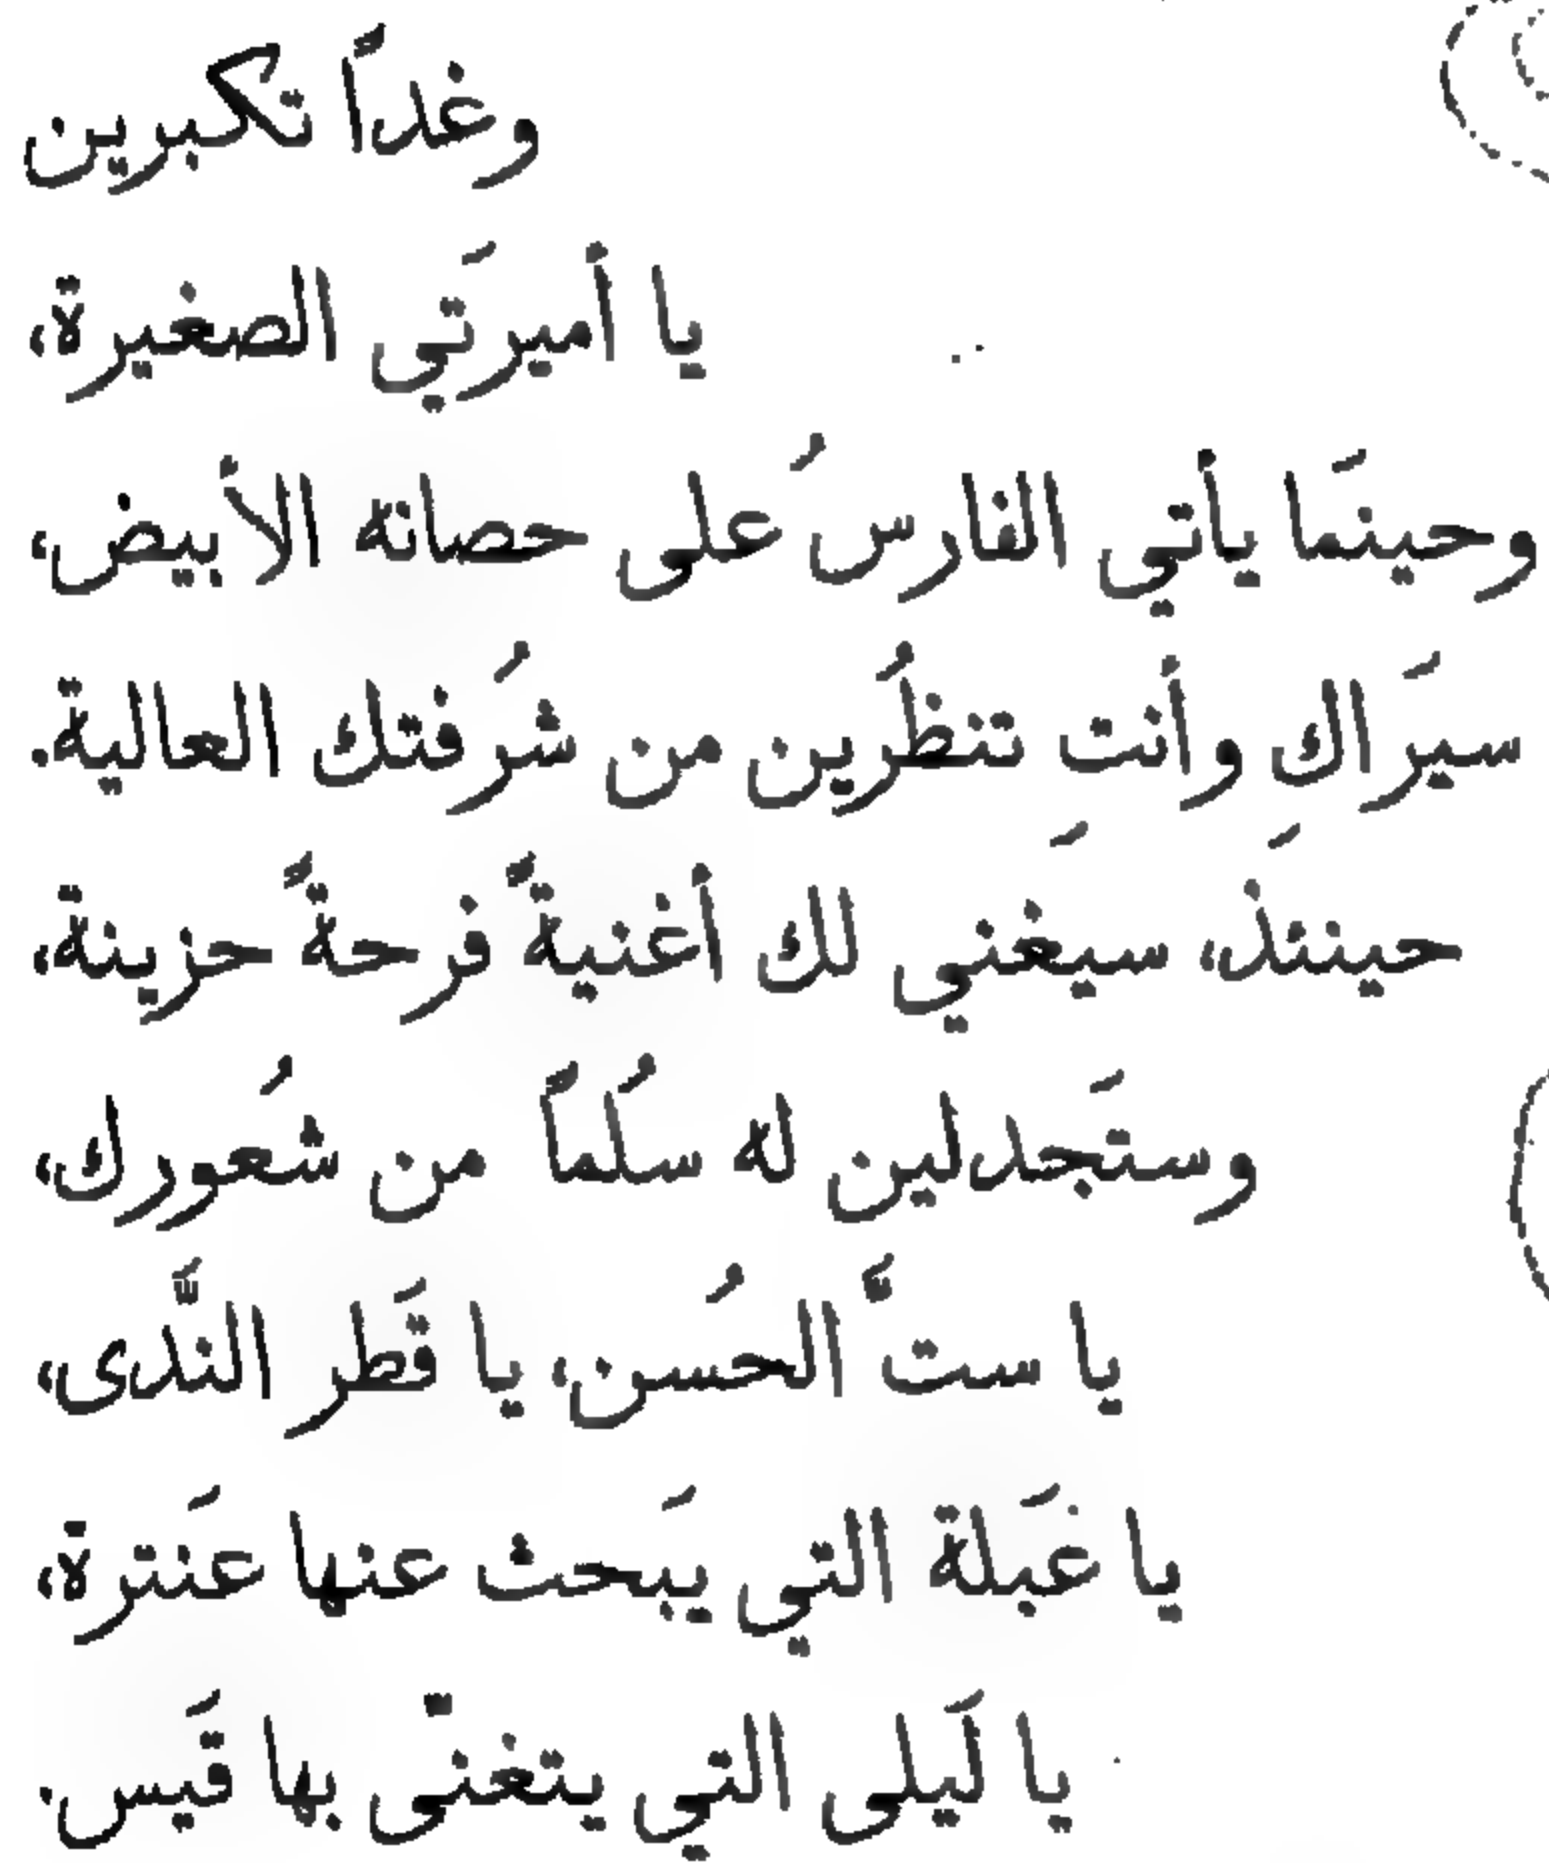 وغداً تكبرين
يا أميرَتي الصغيرة،
وحينَما يأتي الفارسُ على حصانه الأبيض،
سيَراكِ وأنتِ تنظُرين من شُرفتك العالية.
حينئذٍ، سيغني لك أغنيةً فرحةً حزينة،
وستَجدلين له سُلماً من شُعورك،
يا ستَّ الحُسن، يا قَطر النَّدى،
يا عَبلة التي يَبحث عنها عَنترة،
يا لَيلى التي يتغنّى بها قَيس.